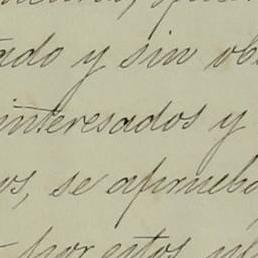 ado y sin ob
interesados y
os, se aprueba
por estos